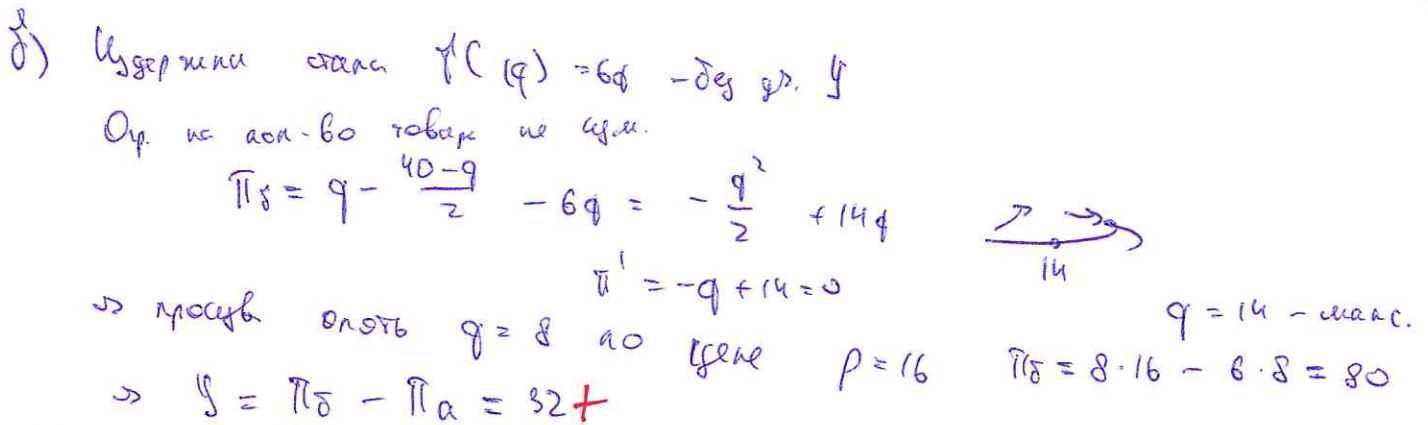 б) Издержки стали TC(q) = 6q - без уч. У
Огр. на кол-во товара не изм.
Пб = q - (40-q)/2 - 6q = - q²/2 + 14q
14
π' = -q + 14 = 0
q = 14 - макс.
=> опять q = 8 по цене p = 16 Пб = 8·16 - 6·8 = 80
=> У = Пб - Па = 32 +